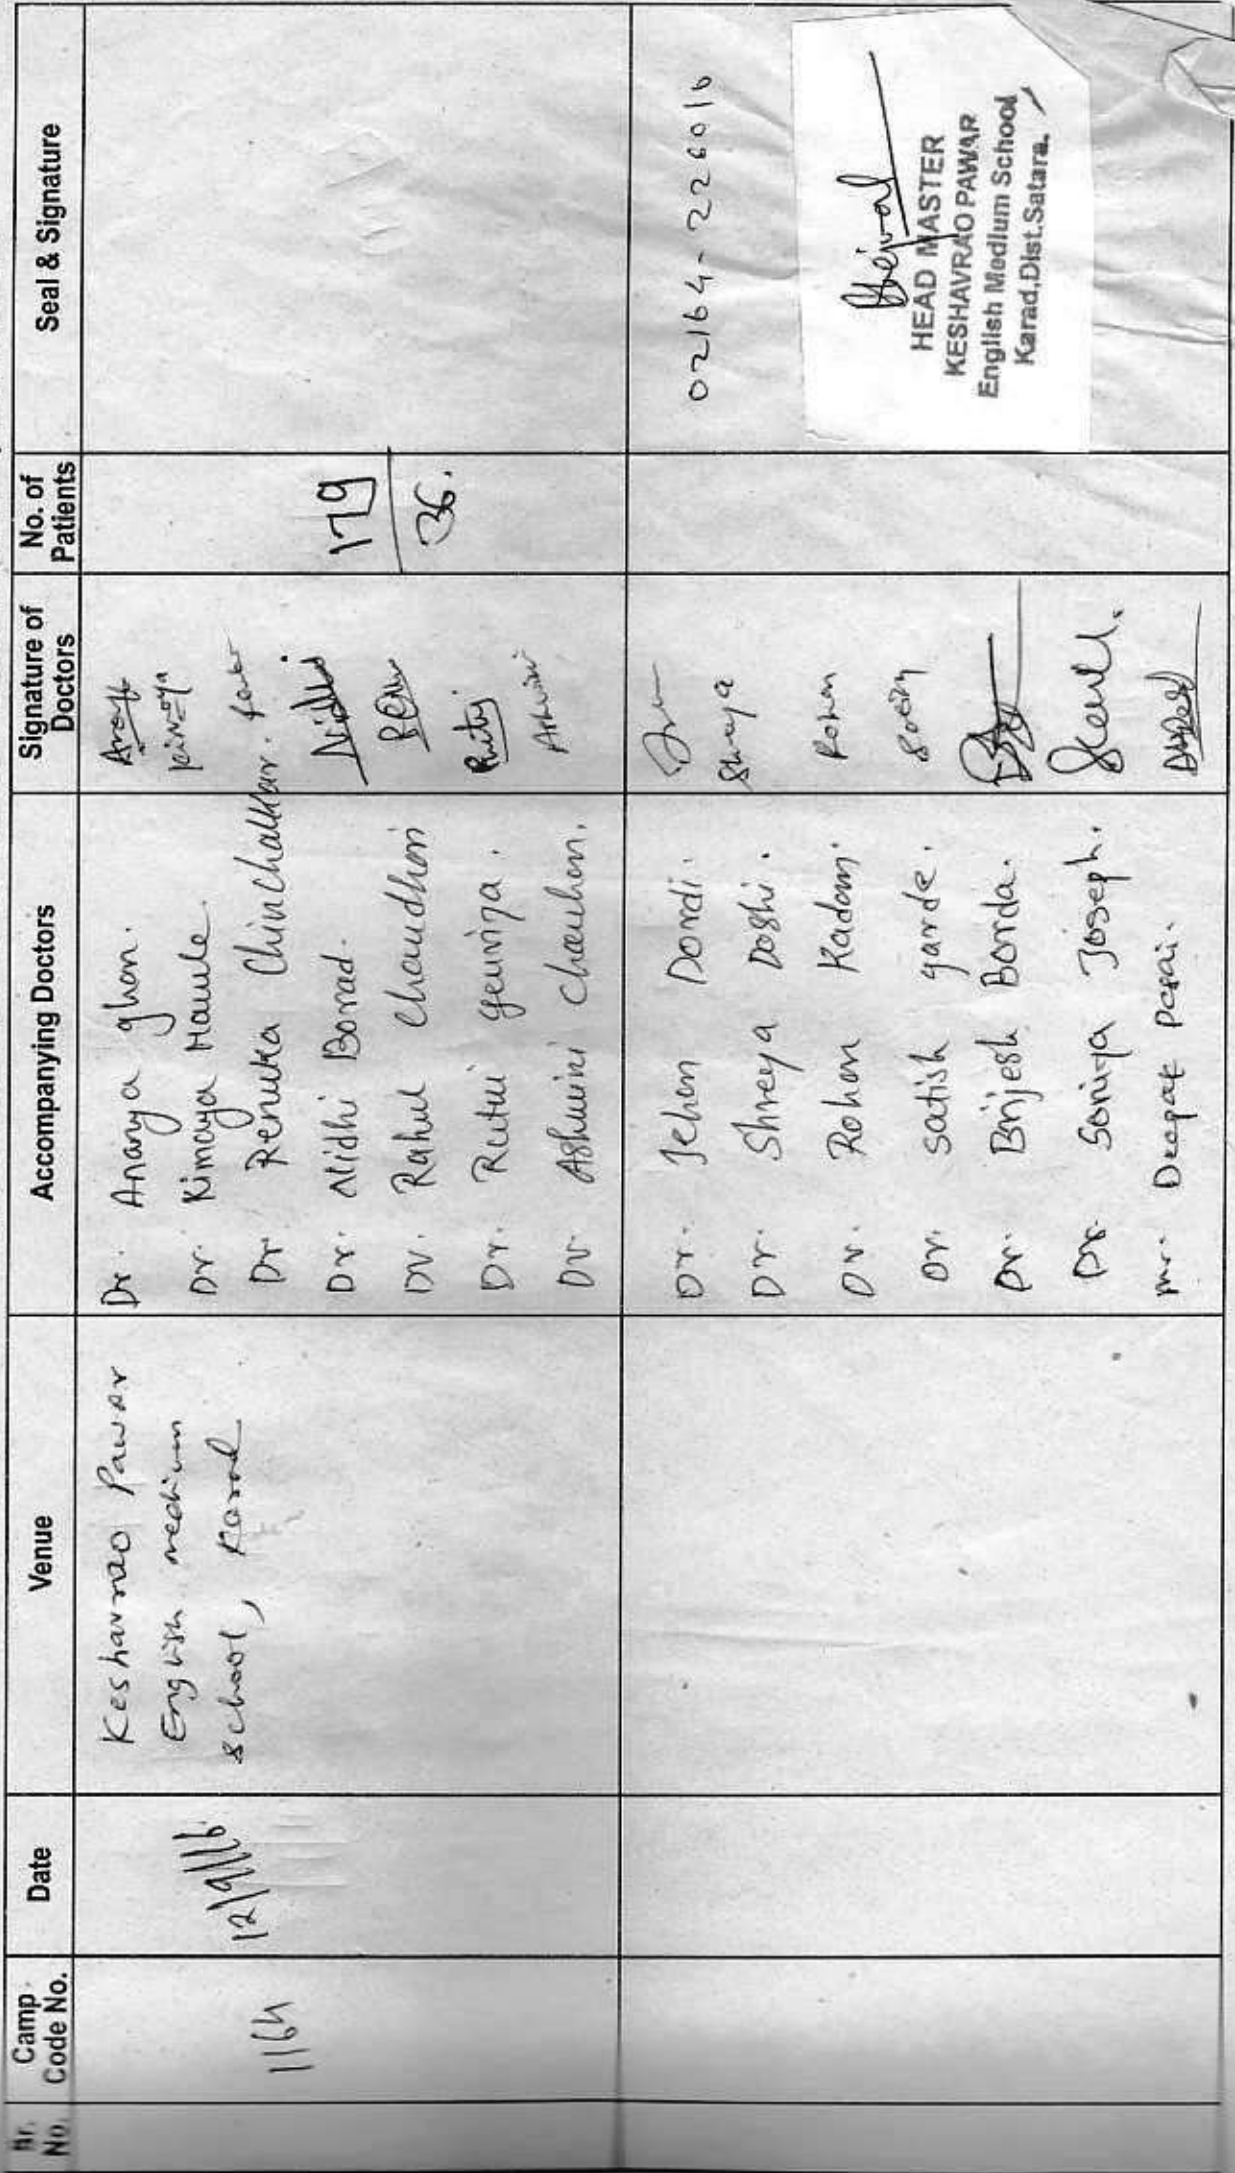 Sr. No.
Camp Code No.
Date
Venue
Accompanying Doctors
Signature of Doctors
No. of Patients
Seal & Signature
1164
12/9/16
Keshavrao Pawar
English medium
school, Karad
Dr. Ananya ghon.
Dr. Kimaya Hawle.
Dr. Renuka Chinchalkar.
Dr. Nidhi Borad.
Dr. Rahul Chaudhari
Dr. Rutui
Dr. Ashwini Chauhan.
kimaya
Nidhi
Rutuj
Ashwini
179
36.
Dr. Jehan Dordi.
Dr. Shreya Doshi.
Dr. Rohan Kadam.
Dr. Satish garde.
Dr. Brijesh Borda.
Dr. Soniya Joseph.
Mr. Deepak
Shreya
Rohan
02164-226010
HEAD MASTER
KESHAVRAO PAWAR
English Medium School
Karad,Dist.Satara.